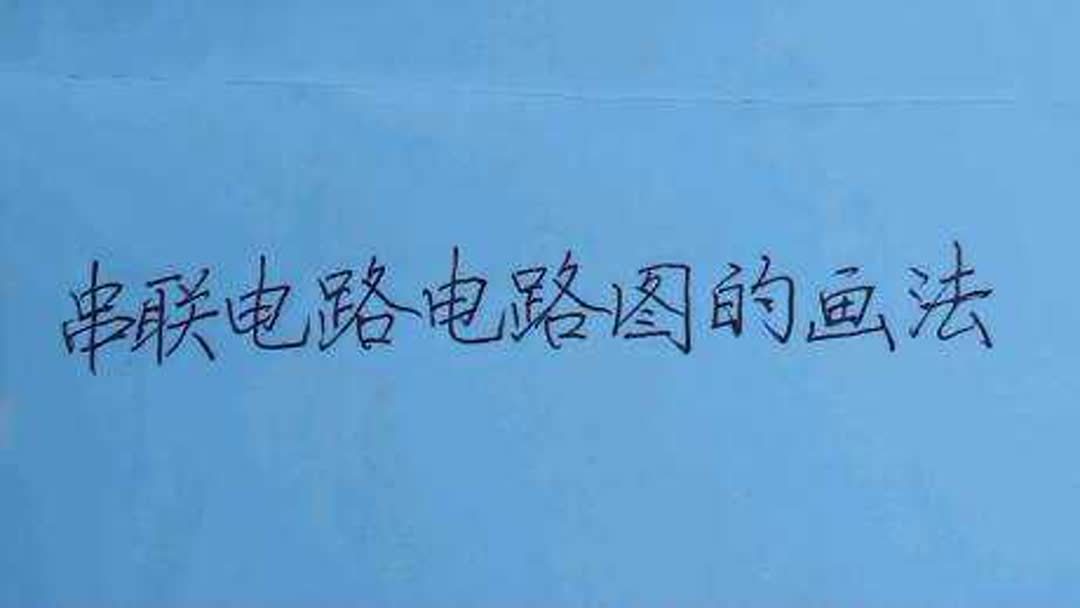 串联电路电路图的画法